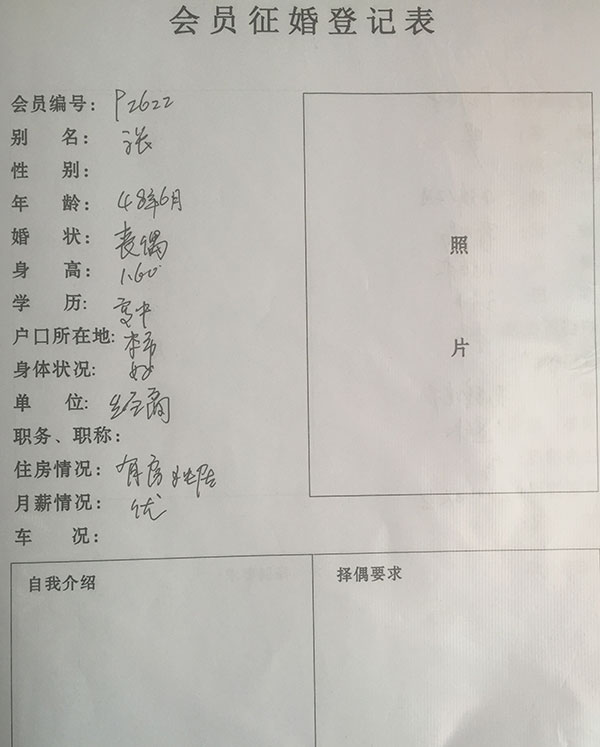 会员征婚登记表
会员编号：P2622
别 名：张
性 别：
年 龄：48年6月
婚 状：丧偶
身 高：1.60
学 历：高中
户口所在地：本市
身体状况：好
单 位：经商
职务、职称：
住房情况：有房 独居
月薪情况：优
车 况：
照
片
自我介绍
择偶要求